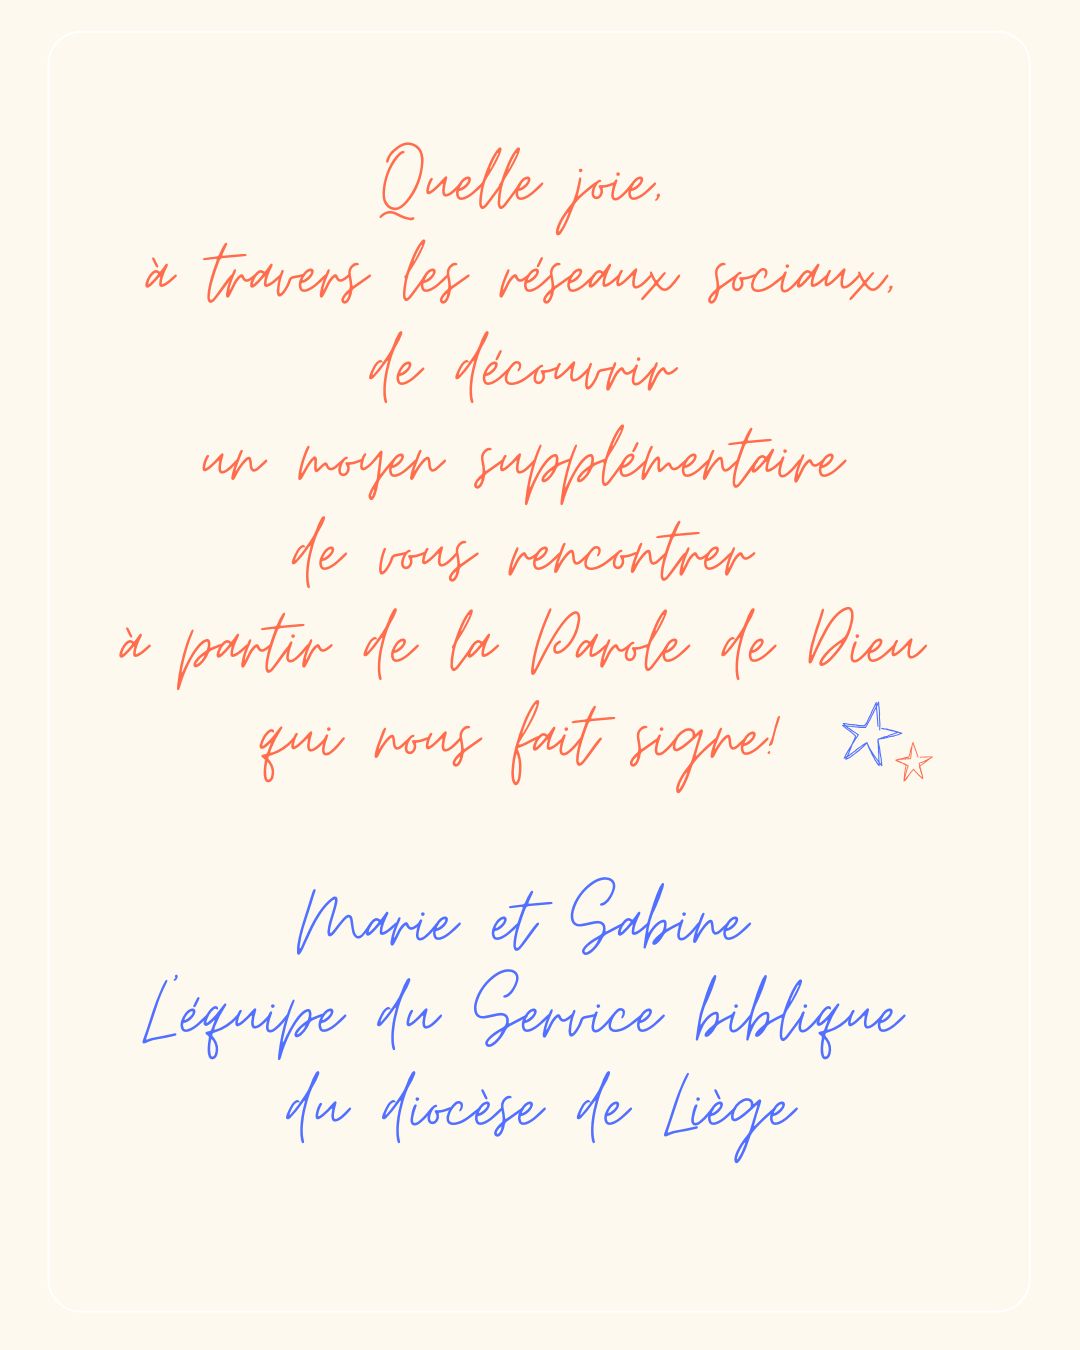 Quelle joie,
à travers les réseaux sociaux,
de découvrir
un moyen supplémentaire
de vous rencontrer
à partir de la Parole de Dieu
qui nous fait signe!
Marie et Sabine
L'équipe du Service biblique
du diocèse de Liège